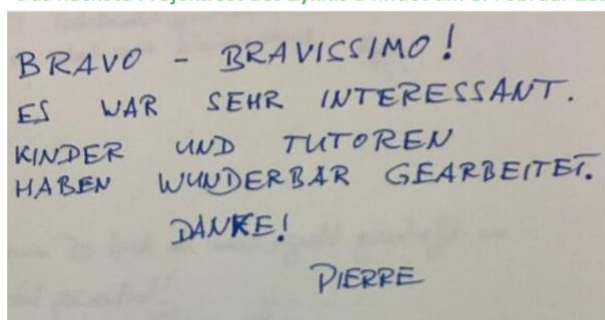 BRAVO - BRAVISSIMO!
ES WAR SEHR INTERESSANT.
KINDER UND TUTOREN
HABEN WUNDERBAR GEARBEITET.
DANKE!
PIERRE